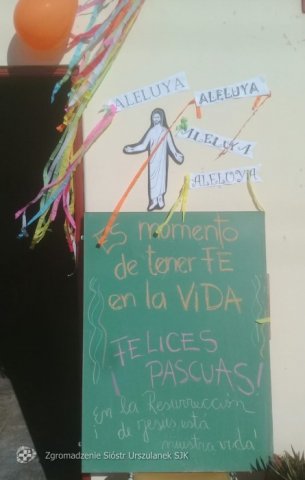 ALELUYA
ALELUYA
ALELUYA
ALELUYA
Es momento
de tener FE
en la VIDA
¡FELICES
PASCUAS!
En la Resurrección
de Jesús está
nuestra vida
Zgromadzenie Sióstr Urszulanek SJK